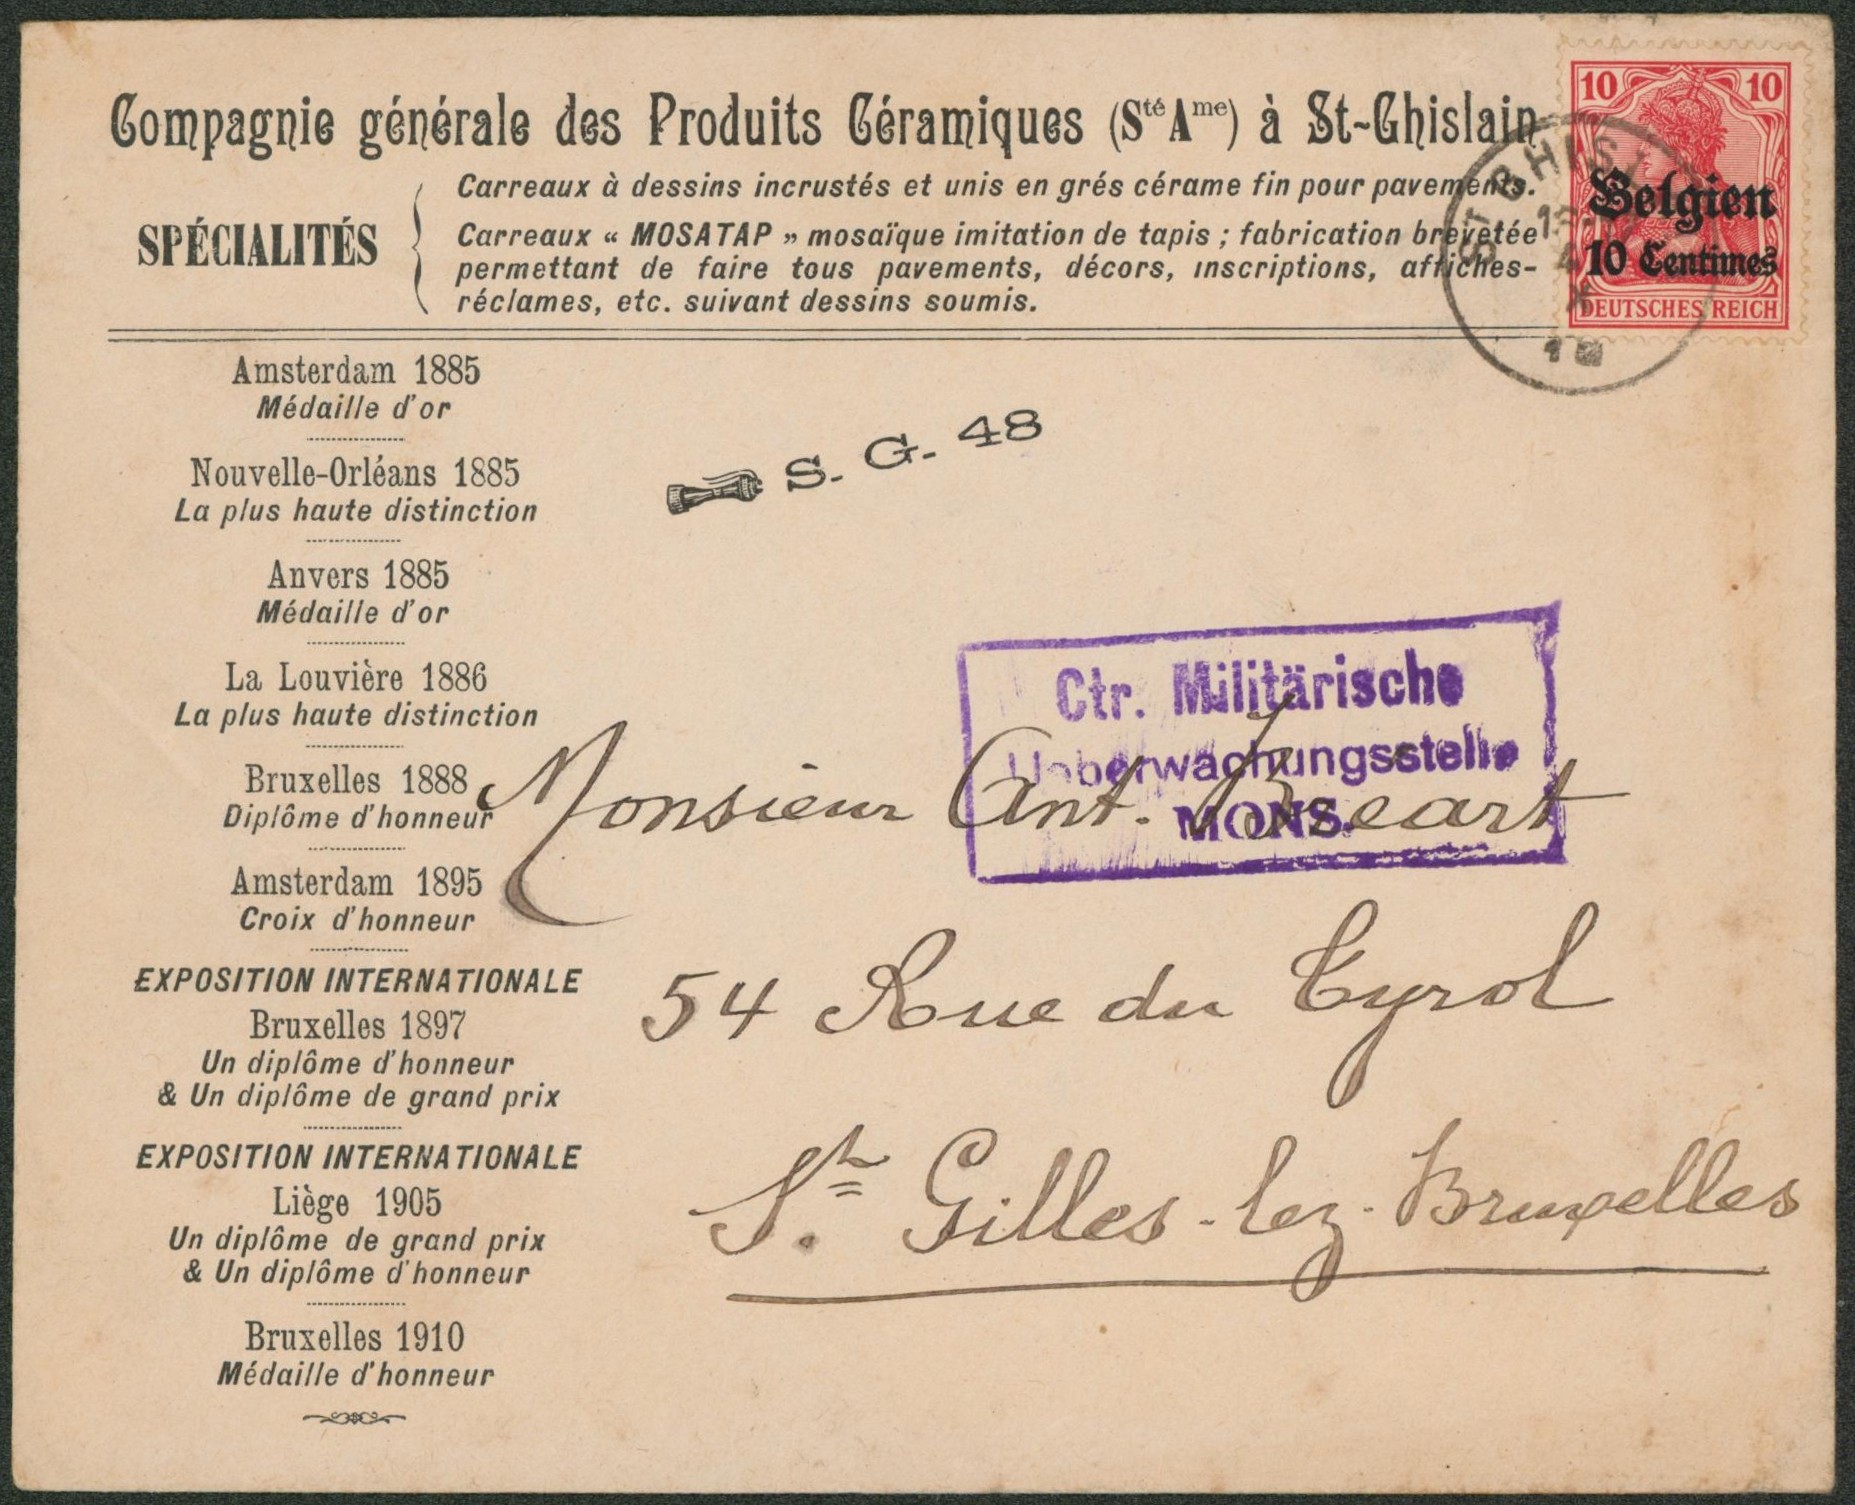 Compagnie générale des Produits Céramiques (Sté Ame) à St-Ghislain
SPÉCIALITÉS
Carreaux à dessins incrustés et unis en grés cérame fin pour pavements.
Carreaux « MOSATAP » mosaïque imitation de tapis ; fabrication brevetée
permettant de faire tous pavements, décors, inscriptions, affiches-
réclames, etc. suivant dessins soumis.
10 10
Belgien
10 Centimes
DEUTSCHES REICH
Amsterdam 1885
Médaille d'or
Nouvelle-Orléans 1885
La plus haute distinction
Anvers 1885
Médaille d'or
La Louvière 1886
La plus haute distinction
Bruxelles 1888
Diplôme d'honneur
Amsterdam 1895
Croix d'honneur
EXPOSITION INTERNATIONALE
Bruxelles 1897
Un diplôme d'honneur
& Un diplôme de grand prix
EXPOSITION INTERNATIONALE
Liège 1905
Un diplôme de grand prix
& Un diplôme d'honneur
Bruxelles 1910
Médaille d'honneur
S. G. 48
Ctr. Militärische
Ueberwachungsstelle
MONS.
Monsieur Ant.
54 Rue du Tyrol
St. Gilles-lez-Bruxelles